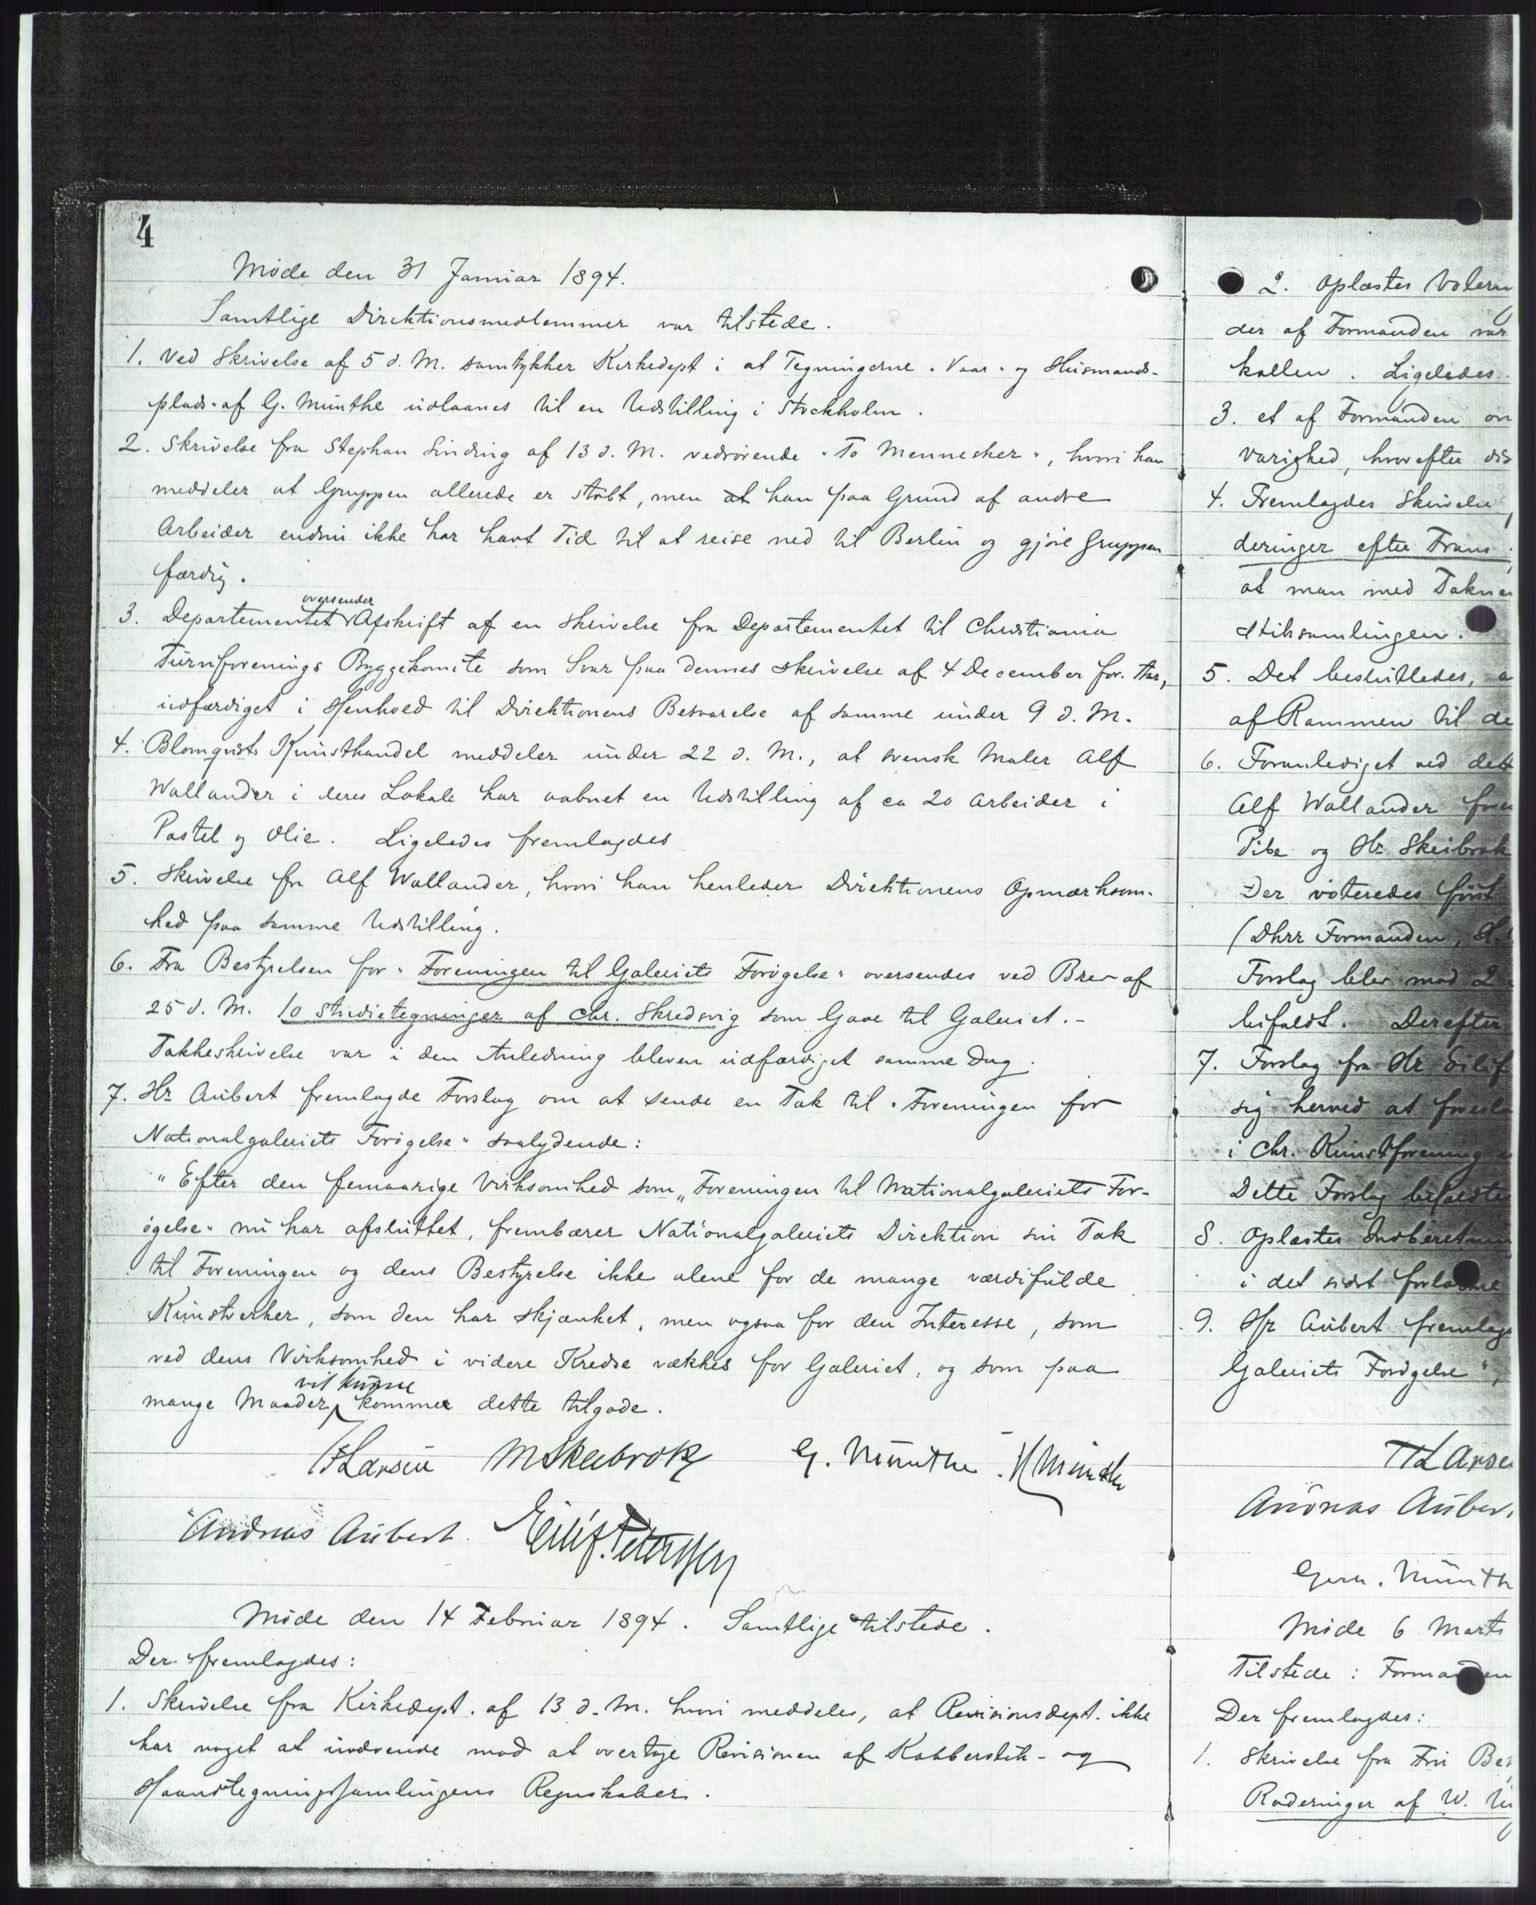 4
Møde den 31 Januar 1894.
Samtlige Direktionsmedlemmer var tilstede.
1. Ved Skrivelse af 5 d. M. samtykker Kirkedept i at Tegningerne "Vaar" og Husmands-
plads" af G. Munthe udlaanes til en Udstilling i Stockholm.
2. Skrivelse fra Stephan Sinding af 13 d. M. vedrørende "To Mennesker", hvori han
meddeler at Gruppen allerede er støbt, men at han paa Grund af andre
Arbeider endnu ikke har havt Tid til at reise ned til Berlin og gjøre Gruppen
færdig.
oversender
3. Departementet Afskrift af en Skrivelse fra Departementet til Christiania
Turnforenings Byggekomite som Svar paa dennes Skrivelse af 4 December for. Aar,
udfærdiget i Henhold til Direktionens Besvarelse af samme under 9 d. M.
4. Blomqvists Kunsthandel meddeler under 22 d. M., at svensk Maler Alf
Wallander i deres Lokale har aabnet en Udstilling af ca 20 Arbeider i
Pastel og Olie. Ligeledes fremlagdes
5. Skrivelse fra Alf Wallander, hvori han henleder Direktionens Opmærksom-
hed paa samme Udstilling.
6. Fra Bestyrelsen for "Foreningen til Galeriets Forøgelse" oversendes ved Brev af
25 d. M. 10 Studietegninger af Chr. Skredsvig som Gave til Galeriet. -
Takkeskrivelse var i den Anledning bleven udfærdiget samme Dag.
7. Hr Aubert fremlagde Forslag om at sende en Tak til "Foreningen for
Nationalgaleriets Forøgelse" saalydende:
"Efter den femaarige Virksomhed som "Foreningen til Nationalgaleriets For-
øgelse" nu har afsluttet, frembærer Nationalgaleriets Direktion sin Tak
til Foreningen og dens Bestyrelse ikke alene for de mange værdifulde
Kunstverker, som den har skjænket, men ogsaa for den Interesse, som
ved dens Virksomhed i videre Kredse vækkes for Galeriet, og som paa
vil kunne
mange Maader kommer dette tilgode.
HLarsen MSkeibrok G. Munthe. H Munthe
Andreas Aubert. Eilif Peterssen
Møde den 14 Februar 1894. Samtlige tilstede.
Der fremlagdes:
1. Skrivelse fra Kirkedept. af 13 d. M. hvori meddeles, at Revisionsdept. ikke
har noget at indvende mod at overtage Revisionen af Kobberstik- og
Haandtegningssamlingens Regnskaber.
2. Oplæstes
der af Formanden var
kallen. Ligeledes
3. et af Formanden
Varighed, hvorefter
4. Fremlagdes Skrivelse
deringer efter Frans
at man med
stiksamlingen.
5. Det besluttedes, a
af Rammen til de
6. Foranlediget ved det
Alf Wallander
Pibe og Hr Skeibrok
Der voteredes først
(Dhrr Formanden, H
Forslag blev mod 2
bifaldt. Derefter
7. Forslag fra Hr Eilif
sig herved at foresla
i Chr. Kunstforening
Dette Forslag bifaldtes
8. Oplæstes Indberetnin
i det sidst forløbne
9. Hr Aubert fremlag
Galeriets Forøgelse",
HLarse
Andreas Auber
Gerh. Munth
Møde 6 Marts
Tilstede: Formanden
Der fremlagdes:
1. Skrivelse fra Fru Be
Raderinger af W. Un